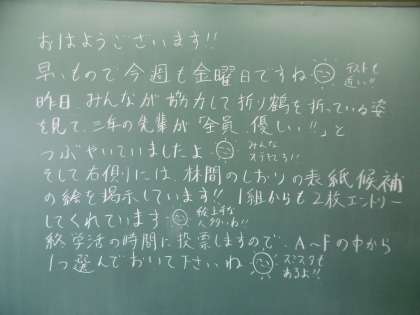 おはようございます!!
早いもので今週も金曜日ですね
テストも
近い!!
昨日、みんなが協力して折り鶴を折っている姿
を見て、三年の先輩が「全員、優しい!!」と
つぶやいていましたよ
みんな
ステキでしょう!!
そして右側には、林間のしおりの表紙候補
の絵を掲示しています!! 1組からも2枚エントリー
してくれています
絵上手な
人多いね!!
終学活の時間に投票しますので、A〜Fの中から
1つ選んでおいて下さいね
ミニテスも
あるよ!!